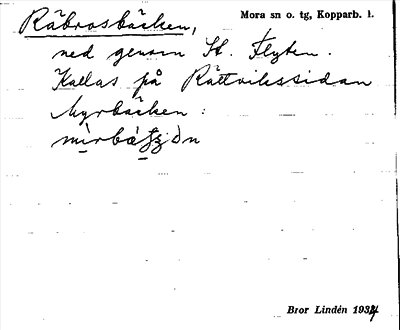 Råbrosbäcken, Mora sn o. tg, Kopparb. l.
ned genom St. Flyten.
Kallas på Rättvikssidan
Myrbäcken:
Bror Lindén 1934